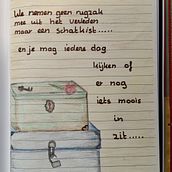 We nemen geen rugzak
mee uit het verleden
maar een schatkist.....
en je mag iedere dag
kijken of
er nog
iets moois
in
zit.....